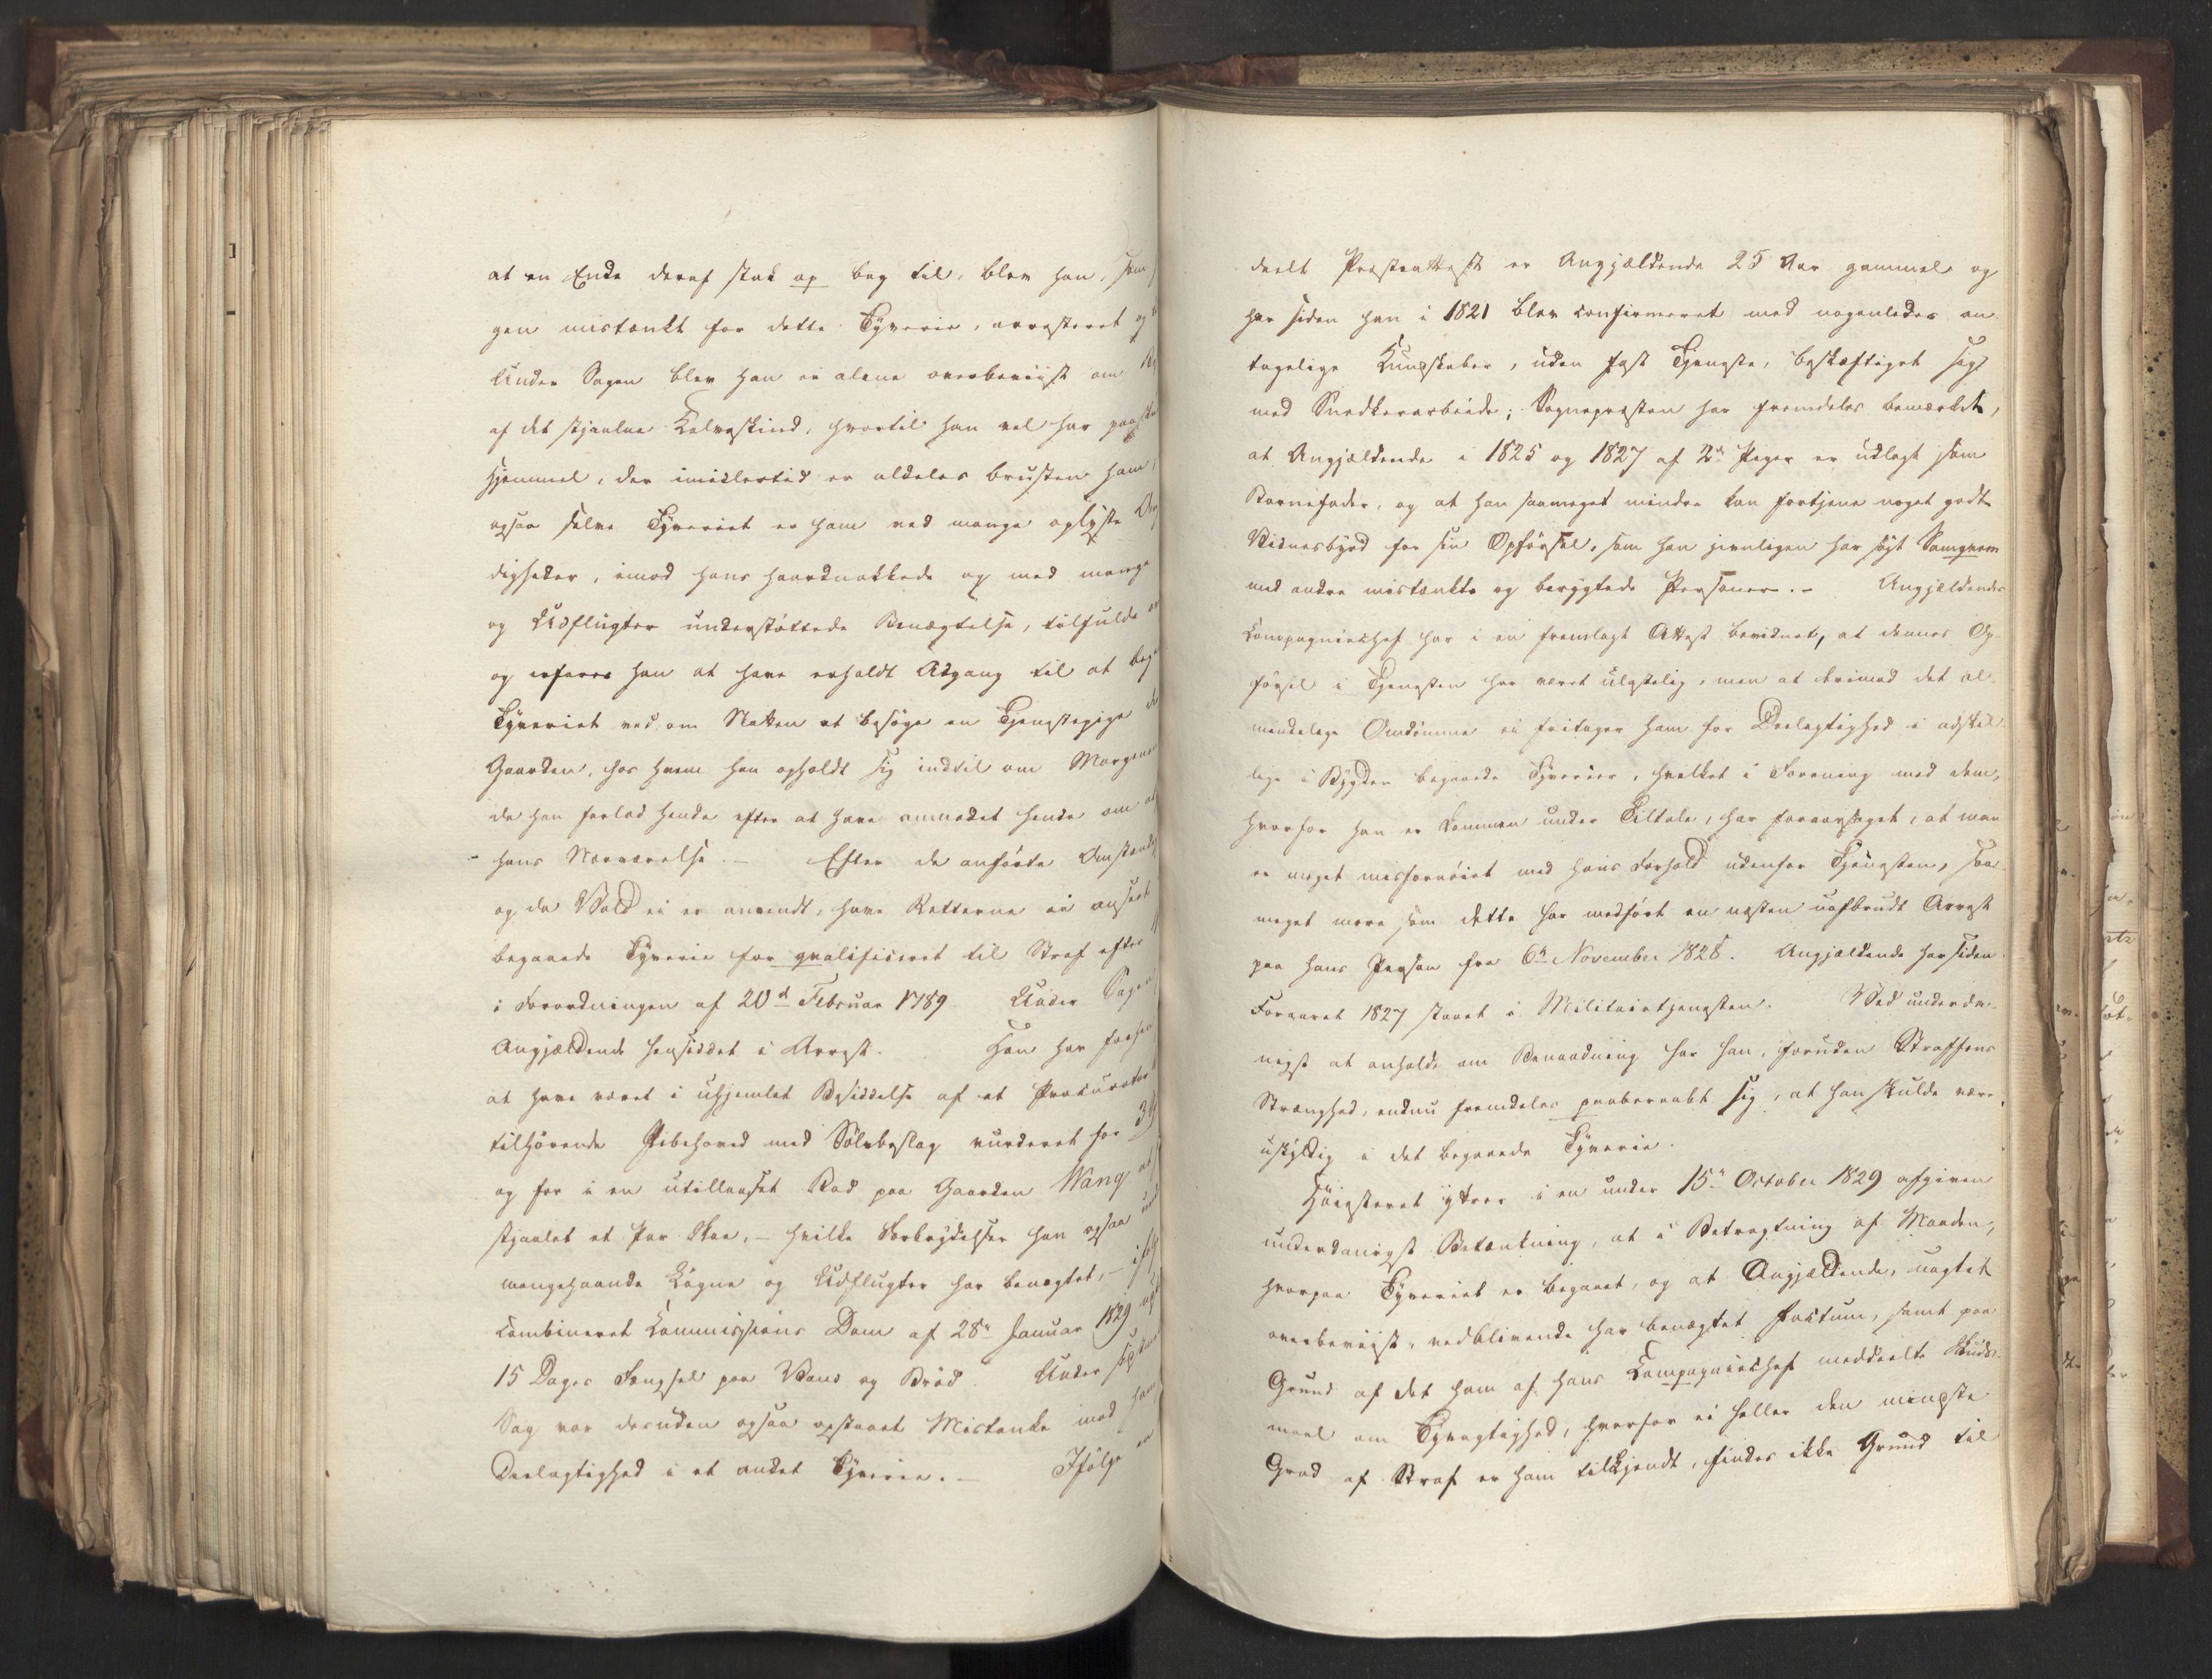 at en Ende deraf stak op bag til, blev han, som
gen mistænkt for dette Tyverie, arresteret og
Under Sagen blev han ei alene overbeviist om
af det stjaalne Kalveskind, hvortil han vel har paa
Hjemmel, der imidlertid er aldeles brusten ham,
ogsaa selve Tyveriet er ham ved mange oplyste
digheder, imod hans haardnakkede og med mange
og Udflugter understøttede Benægtelse, tilfulde
og erfares han at have erholdt Adgang til at
Tyveriet ved om Natten at besøge en Tjenestepige
Gaarden, hos hvem han opholdt sig indtil om Morgenen
da han forlod hende efter at have anmodet hende om at
hans Nærværelse. – Efter de anførte Omstænd
og da Vold ei er anvendt, have Retterne ei anseet
begaaede Tyverie for qvalificeret til Straf efter
i Forordningen af 20d Februar 1789. Under Sagen
Angjældende hensiddet i Arrest. Han har
at have været i uhjemlet Besiddelse af et Procurator
tilhørende Pibehoved med Sølvbeslag vurderet for 3
og for i en utillaaset Bod paa Gaarden Wang at
stjaalet et Par Skoe, – hvilke Forbrydelser han ogsaa
mangehaande Løgne og Udflugter har benægtet, –
combineret Commissions Dom af 28n Januar 1829
15 Dages Fængsel paa Vand og Brød. Under
Sag var desuden ogsaa opstaaet Mistanke mod ham
Deelagtighed i et andet Tyverie. – Ifølge
deelt Præsteattest er Angjældende 25 Aar gammel og
har siden han i 1821 blev confirmeret med nogenledes an-
tagelige Kundskaber, uden fast Tjeneste, beskæftiget sig
med Snedkerarbeide; Sognepræsten har fremdeles bemærket,
at Angjældende i 1825 og 1827 af 2de Piger er udlagt som
Barnefader, og at han saameget mindre kan fortjene noget godt
Vidnesbyrd for sin Opførsel, som han jevnligen har søgt Samqvem
med andre mistænkte og berygtede Personer. – Angjældendes
Compagniechef har i en fremlagt Attest bevidnet, at dennes Op-
førsel i Tjenesten har været ulastelig, men at derimod det al-
mindelige Omdømme ei fritager ham for Deelagtighed i adskil-
lige i Bygden begaaede Tyverier, hvilket i Forening med dem,
hvorfor han er kommen under Tiltale, har foraarsaget, at man
er meget misfornøiet med hans Forhold udenfor Tjenesten, saa-
meget mere som dette har medført en næsten uafbrudt Arrest
paa hans Person fra 6n November 1828. Angjældende har siden
Foraaret 1827 staaet i Militairtjenesten. Ved underda-
nigst at anholde om Benaadning har han, foruden Straffens
Strænghed, endnu fremdeles paaberaabt sig, at han skulde være
uskyldig i det begaaede Tyverie.
Høiesteret yttrer i en under 15n October 1829 afgiven
underdanigst Betænkning, at i Betragtning af Maaden,
hvorpaa Tyveriet er begaaet, og at Angjældende, uagtet
overbeviist, vedblivende har benægtet Factum, samt paa
Grund af det ham af hans Compagniechef meddeelte Skuds-
maal om Tyvagtighed, hvorfor ei heller den mindste
Grad af Straf er ham tilkjendt, findes ikke Grund til